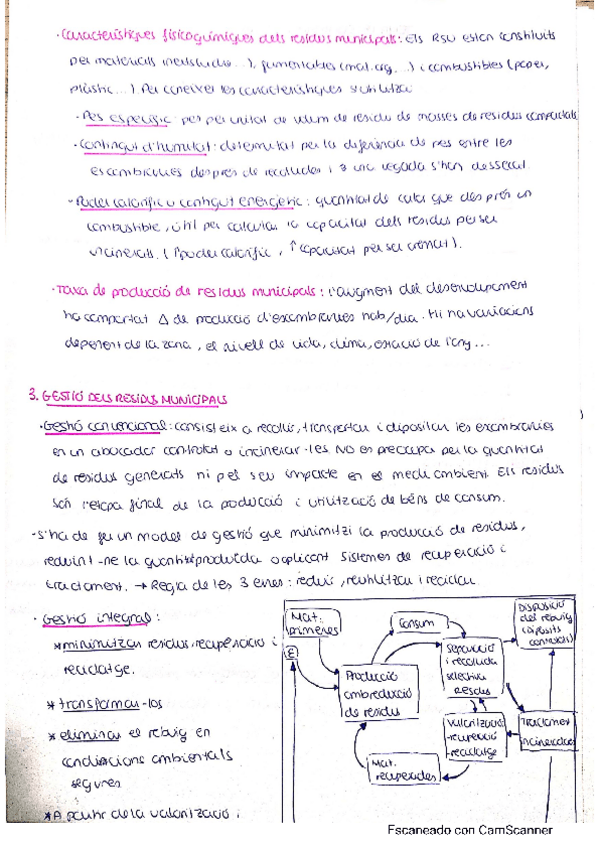 · Característiques fisicoquímiques dels residus municipals: Els RSU estan constituïts
per materials inerts (vidre...), fermentables (mat. org, ...) i combustibles (paper,
plàstic...). Per conèixer les característiques s'utilitza:
· Pes específic: pes per unitat de volum de residu de masses de residus compactats
· Contingut d'humitat: determinat per la diferència de pes entre les
escombraries després de recollides i 1 vegada s'han dessecat.
· Poder calorífic o contigut energètic: quantitat de calor que desprèn un
combustible, útil per calcular la capacitat dels residus per ser
incinerats. (↑poder calorífic, ↑capacitat per ser cremat).
· Taxa de producció de residus municipals: l'augment del desenvolupament
ha comportat Δ de producció d'escombraries hab/dia. Hi ha variacions
depenent de la zona, el nivell de vida, clima, estació de l'any...
3. GESTIÓ DELS RESIDUS MUNICIPALS
· Gestió convencional: consisteix a recollir, transportar i dipositar les escombraries
en un abocador controlat o incinerar-les. NO es preocupa per la quantitat
de residus generats ni pel seu impacte en el medi ambient. Els residus
són l'etapa final de la producció i utilització de béns de consum.
· S'ha de fer un model de gestió que minimitzi la producció de residus,
reduint-ne la quantitat produïda o aplicant sistemes de recuperació i
tractament. → Regla de les 3 erres: reduir, reutilitzar i reciclar.
· Gestió integral:
* minimitzar residus, recuperació i
reciclatge.
* transformar-los
* eliminar el rebuig en
condicions ambientals
segures
* A partir de la valorització i
Mat.
primeres
E
Consum
Producció
amb reducció
de residus
Mat.
recuperades
Separació
i recollida
selectiva
Residus
Valorització
-recuperació
-reciclatge
Disposició
del rebuig
(Dipòsits
controlats)
Tractament
incineradora
Escaneado con CamScanner